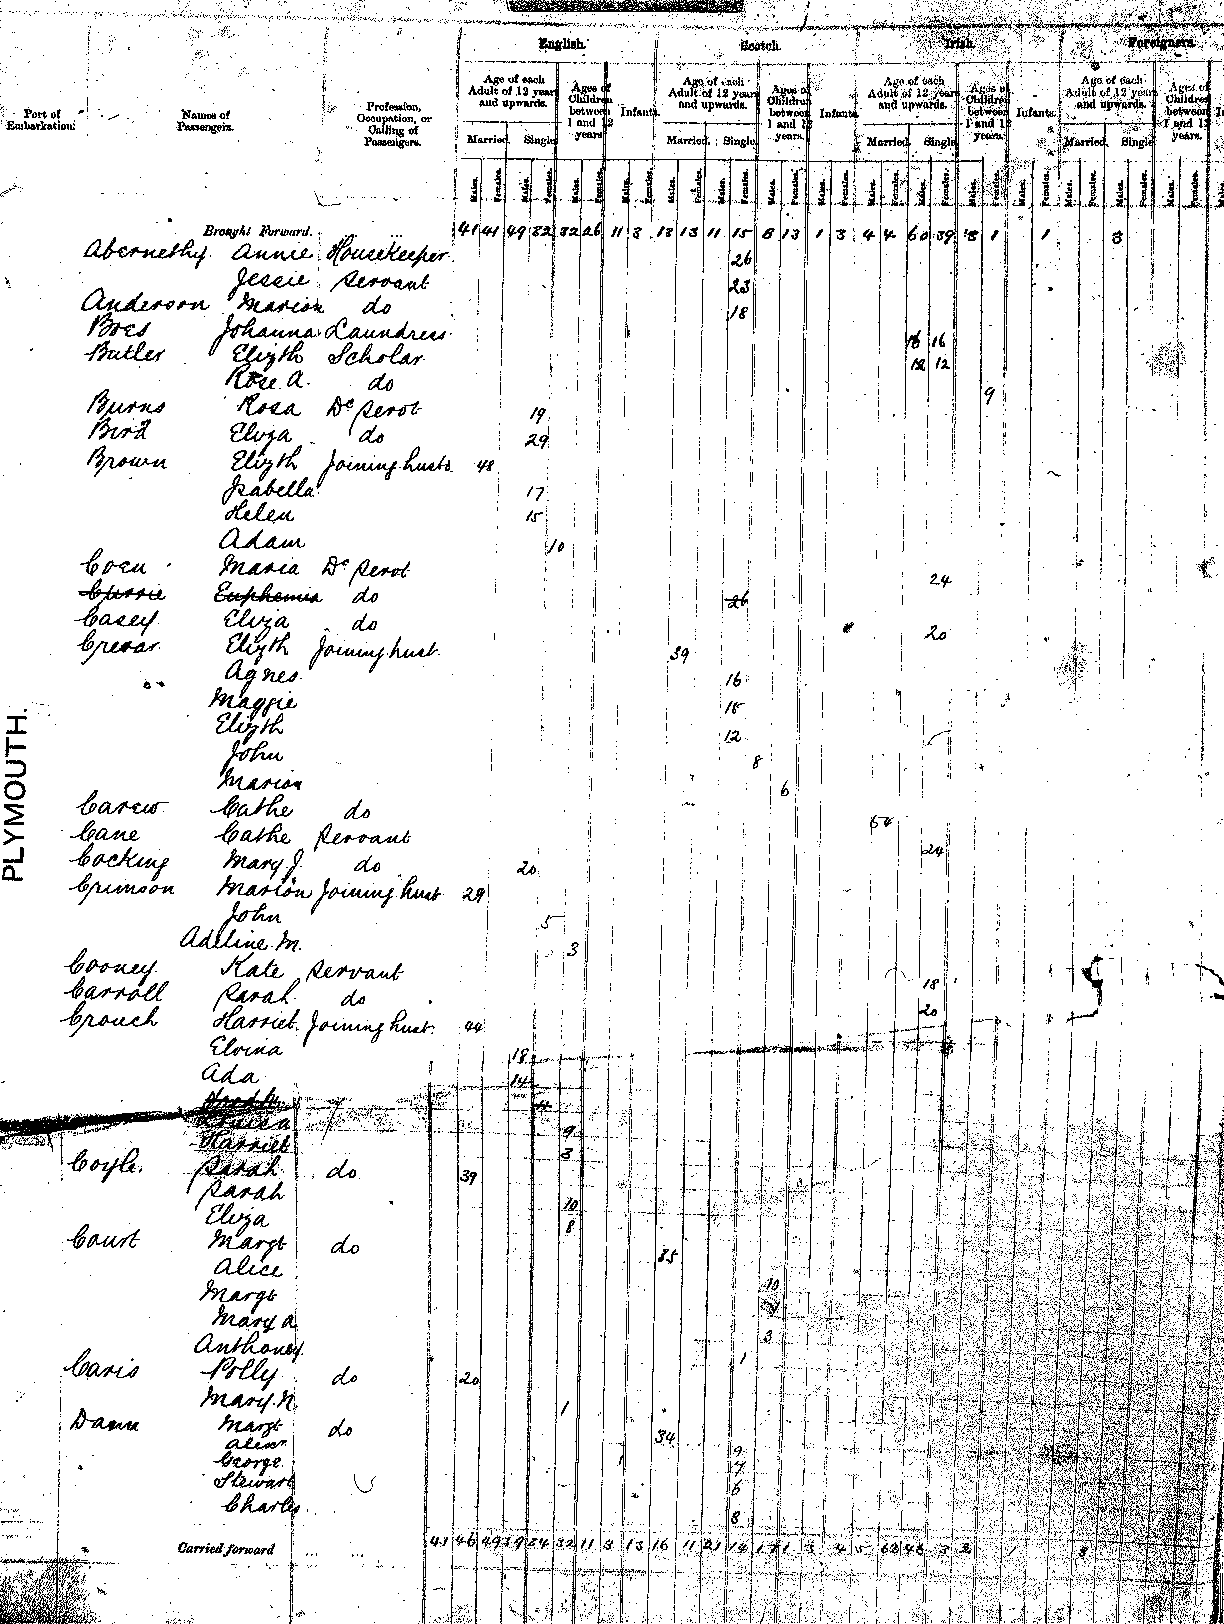 English. Scotch. Irish. Foreigners.
Port of Embarkation. Names of Passengers. Profession, Occupation, or Calling of Passengers. Age of each Adult of 12 years and upwards. Ages of Children between 1 and 12 years. Infants. Age of each Adult of 12 years and upwards. Ages of Children between 1 and 12 years. Infants. Age of each Adult of 12 years and upwards. Ages of Children between 1 and 12 years. Infants. Age of each Adult of 12 years and upwards. Ages of Children between 1 and 12 years.
Married. Single Married. Single Married. Single Married. Single
Males. Females. Males. Females. Males. Females. Males. Females. Males. Females. Males. Females. Males. Females. Males. Females. Males. Females. Males. Females. Males. Females. Males. Females. Males. Females. Males. Females. Males. Females.
Brought Forward. 41 41 49 32 32 26 11 3 13 13 11 15 8 13 1 3 4 4 60 39 8 1 1 8
Abernethy Annie Housekeeper 26
Jessie Servant 23
Anderson Marion do 18
Boes Johanna Laundress 16 16
Butler Elizth Scholar 12 12
Rose A. do 9
Burns Rosa Dc Servt 19
Bird Eliza do 29
Brown Elizth Joining husb 48
Isabella 17
Helen 15
Adam 10
Coen Maria Dc Servt 24
Currie Euphemia do 26
Casey Eliza do 20
Crevar Elizth Joining husb 39
Agnes 16
Maggie 15
Elizth 12
John 8
Marion 6
PLYMOUTH.
Carew Cathe do 54
Cane Cathe Servant 24
Cocking Mary J. do 20
Crimson Marion Joining husb 29
John 5
Adeline M. 3
Cooney Kate Servant 18
Carroll Sarah do 20
Crouch Harriet Joining husb 44
Elvina 18
Ada 14
Louisa 9
Harriet 3
Coyle Sarah do 39
Sarah 10
Eliza 8
Court Margt do 35
Alice 10
Margt
Mary A 3
Anthony 1
Caris Polly do 20
Mary N. 1
Dawn Margt do 34
Alexr 9
George 7
Stewart 6
Charles 8
Carried forward 41 46 49 39 24 32 11 3 13 16 11 21 14 17 1 3 4 5 62 46 3 2 1 8